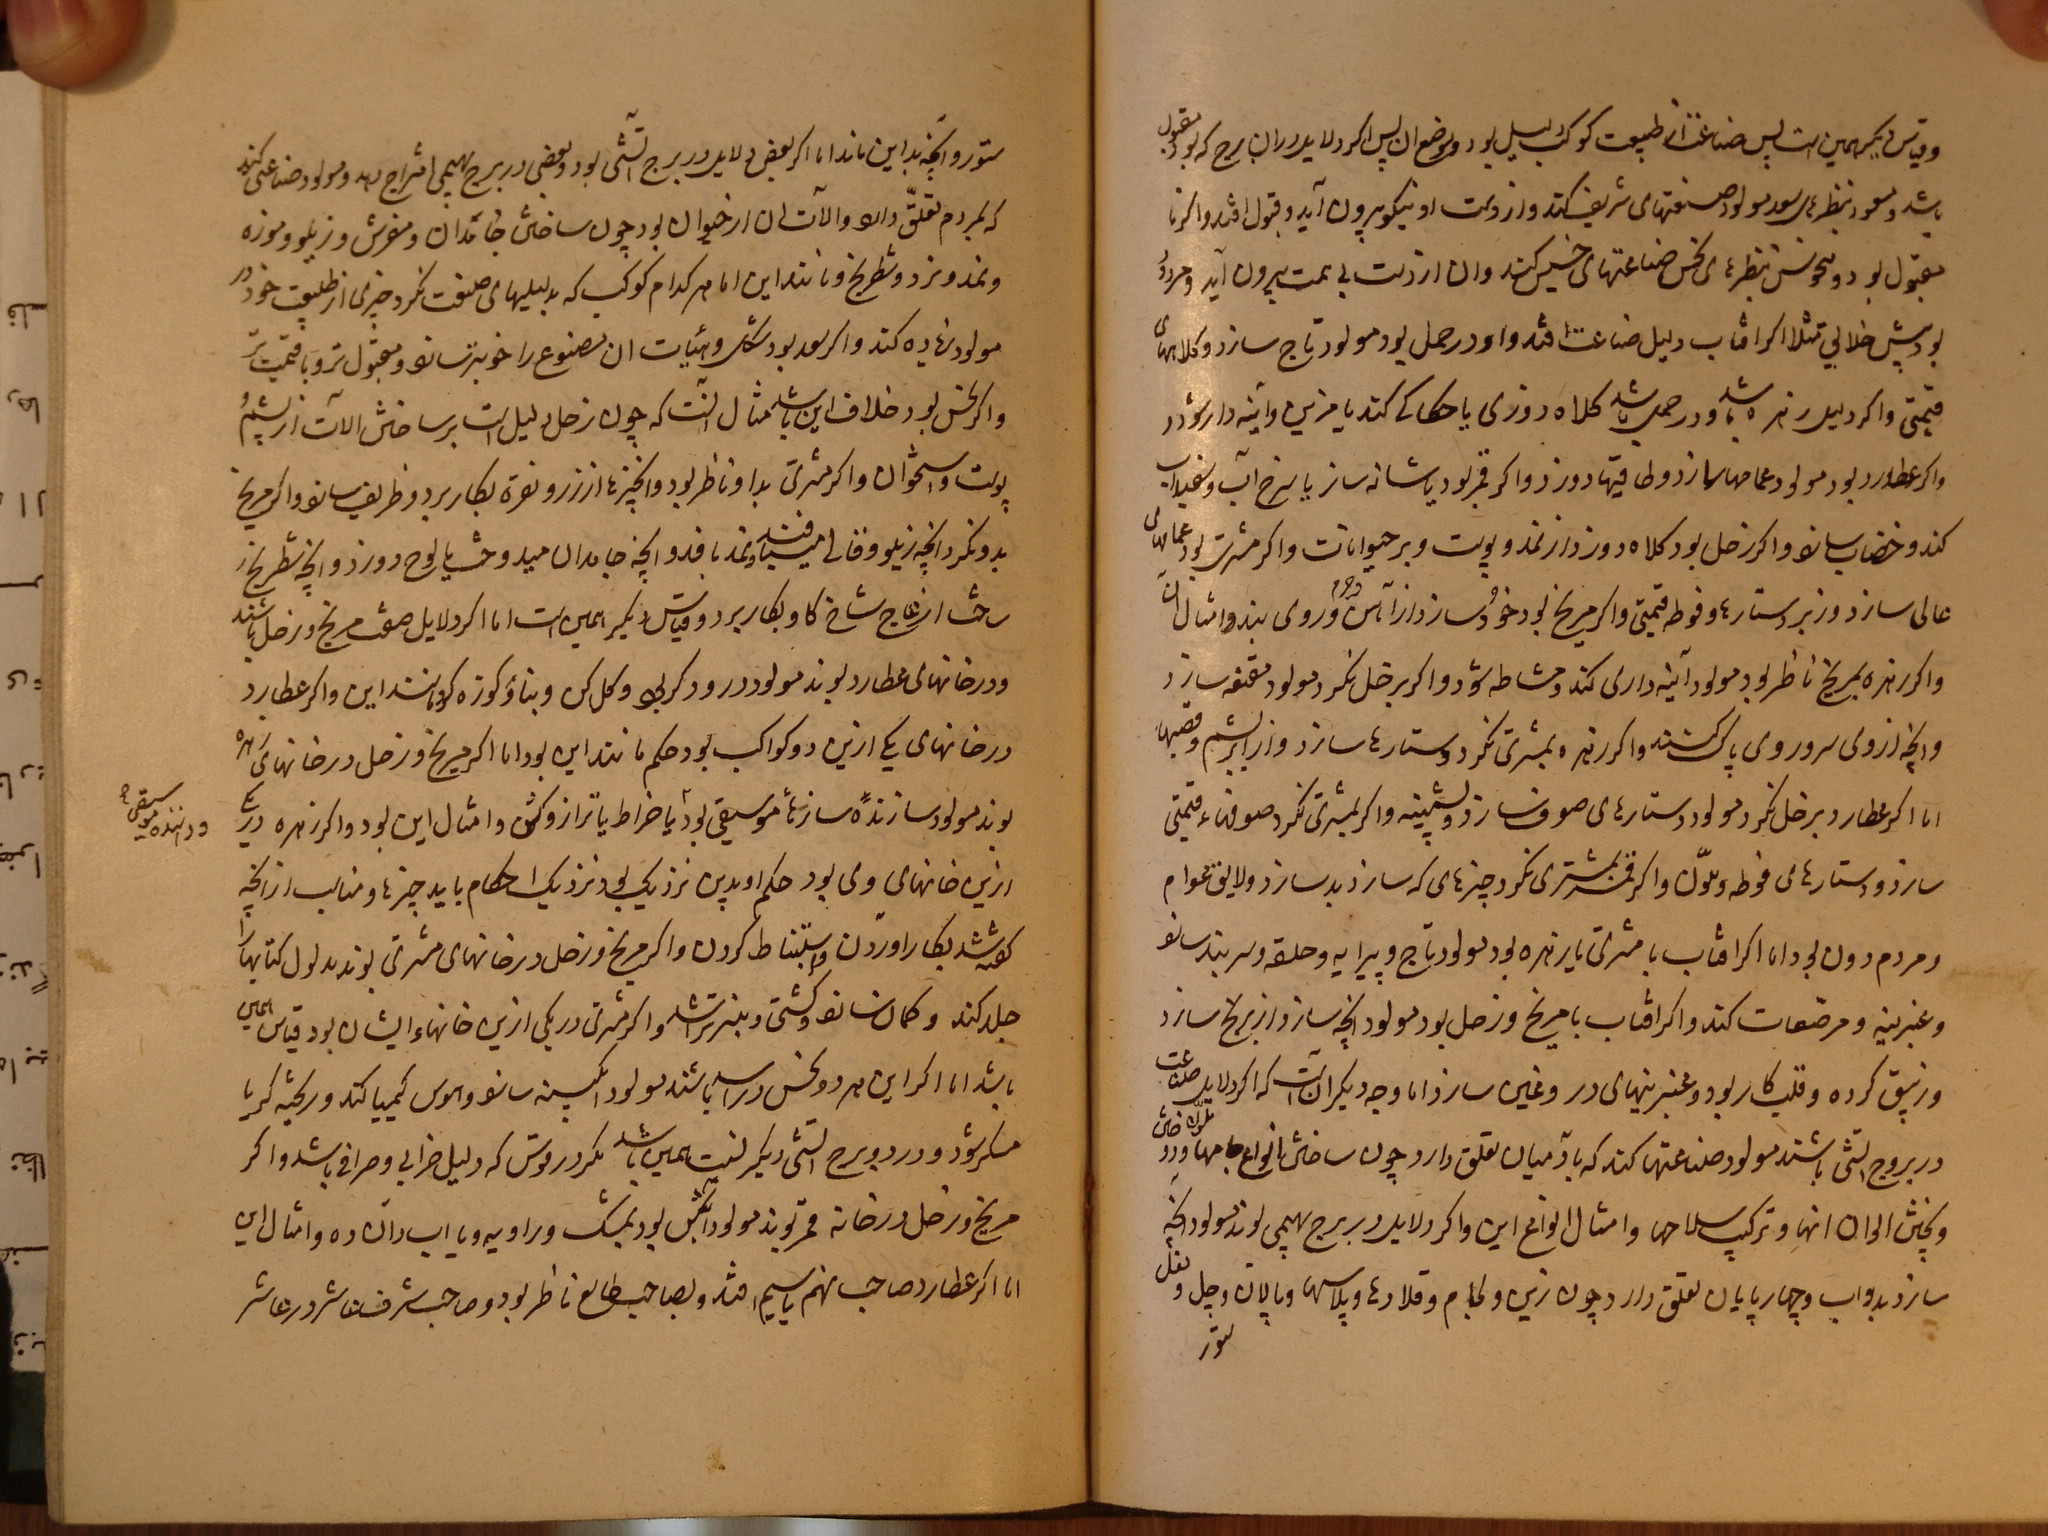 وقیاس دیگر همین است پس صناعت از طبیعت کوکب دلیل بود و موضع ان پس اگر دلایل در ان برج که بود مقبول
باشد و مسعود بنظرهای سعد مولود صنعتهای شریف کند و از دست او نیکو بیرون آید و قبول افتد و اگر نا
مقبول بود و منحوس بنظرهای نحس صناعتهای خسیس کند وان از دست بی همت بیرون آید و مردود
بود پیش خلایق مثلا اگر افتاب دلیل صناعت افتد و او در حمل بود مولود تاج سازد و کلاههای
قیمتی و اگر دلیل زهره باشد و در حمل باشد کلاه دوزی یا حکاکی کند یا مزین و آینه دار شود
و اگر عطارد بود مولود عمامها سازد و طاقیها دوزد و اگر قمر بود یا شانه ساز یا سرخ آب و سفیداب
کند و خضاب سازد و اگر زحل بود کلاه دوزد از نمد و پوست و بر حیوانات و اگر مشتری بود عمامهای
عالی سازد و زبر دستارها و فوطه قیمتی و اگر مریخ بود خود سازد از آهن و روی بند و امثال آن
و اگر زهره بمریخ ناظر بود مولود آئینه داری کند و مشاطه شود و اگر بزحل نگرد مولود مقنعه سازد
و انچه ازوی سر و روی پاک کنند و اگر زهره بمشتری نگرد دستارها سازد و از ابریشم و قصبها
اما اگر عطارد بزحل نگرد مولود دستارهای صوف سازد و پشمینه و اگر بمشتری نگرد صوفهاء قیمتی
سازد و دستارهای فوطه و ملوّن و اگر قمر بمشتری نگرد چیزهای که سازد بد سازد و لایق عوام
و مردم دون بود اما اگر افتاب با مشتری یا زهره بود مولود تاج و پیرایه و حلقه و سربند سازد
و عنبرینه و مرصّعات کند و اگر افتاب با مریخ و زحل بود مولود انچه سازد از برنج سازد
و زیبق کرده و قلب کار بود و عنبرینهای دروغین سازد اما وجه دیگر آنست که اگر دلایل صناعت
در بروج آتشی باشند مولود صناعتها کند که بآدمیان تعلق دارد چون ساختن انواع جامها و دوختن
و پختن الوان انها و ترکیب سلاحها و امثال انواع این و اگر دلایل در برج بهیمی بوند مولود انچه
سازد بدواب و چهارپایان تعلق دارد چون زین و لجام و قلادها و پلاسها و پالان و جل و نعل
ستور
ستور و انچه بدین ماند اما اگر بعض دلایل در برج آتشی بود و بعضی در برج بهیمی امتزاج دهد و مولود صناعتی کند
که بمردم تعلّق دارد و آلات ان از حیوان بود چون ساختن جامدان و مفرش و زیلو و موزه
و نمد و نرد و شطرنج و مانند این اما هر کدام کوکب که بدلیلهای صنعت نگرد چیزی از طبیعت خود در
مولود زیاده کند و اگر سعد بود شکل و هیئات ان مصنوع را خوبتر سازد و مقبول تر و با قیمت تر
و اگر نحس بود خلاف این باشد مثال آنست که چون زحل دلیل است بر ساختن آلات از پشم و
پوست و استخوان و اگر مشتری بدو ناظر بود و انچیزها از زر و نقره بکار برد و ظریف سازد و اگر مریخ
بدو نگرد انچه زیلو و قالی میبافند و نمد بافد و انچه جامدان میدوخت پالوج دوزد و انچه شطرنج از
ساخت از عاج شاخ گاو بکار برد و قیاس دیگر همین است اما اگر دلایل صنعت مریخ و زحل باشند
و در خانهای عطارد بوند مولود درودگر بود و گل کن و بنا و کوزه گر و مانند این و اگر عطارد
در خانهای یکی ازین دو کواکب بود حکم مانند این بود اما اگر مریخ و زحل در خانهای زهره
بوند مولود سازندهٔ سازهاء موسیقی بود یا خراط یا ترازو کش و امثال این بود و اگر زهره در یکی
ازین خانهای وی بود حکم او بدین نزدیک بود نزدیک احکام باید چیزها و مناسب از انچه
گفته شد بکار اوردن و استنباط کردن و اگر مریخ و زحل در خانهای مشتری بوند بدلول کتابها را
جلد کند و کمان سازد و کشتی و منبر تراشد و اگر مشتری در یکی ازین خانهاء ایشان بود قیاس همین
باشد اما اگر این هر دو نحس در اسد باشند مولود آبگینه سازد و هوس کیمیا کند و ریخته گر یا
مسگر شود و در دو برج آتشی دیگر نسبت همین باشد مگر در قوس که دلیل خرابی و صرافی باشد و اگر
مریخ و زحل در خانه قمر بوند مولود آبکش بود بمشک و راویه و یا اب دان ده و امثال این
اما اگر عطارد صاحب نهم یا سیم افتد و بصاحب طالع ناظر بود و صاحب شرف عاشر در عاشر